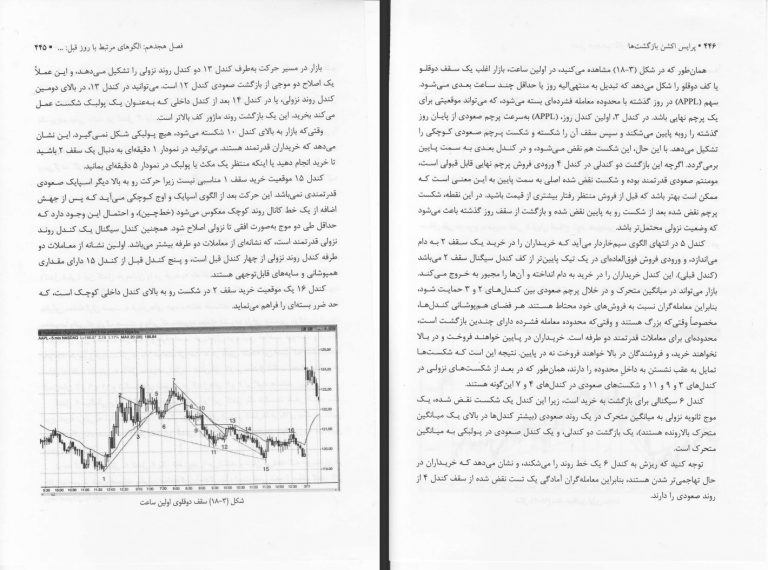 فصل هجدهم: الگوهای مرتبط با روز قبل: ... • ۴۴۵
بازار در مسیر حرکت به‌طرف کندل ۱۳ دو کندل روند نزولی را تشکیل می‌دهد، و این عملاً
یک اصلاح دو موجی از بازگشت صعودی کندل ۱۲ است. می‌توانید در کندل ۱۳، در بالای دومین
کندل روند نزولی، یا در کندل ۱۴ بعد از کندل داخلی که به‌عنوان یک پولبک شکست عمل
می‌کند بخرید. این یک بازگشت روند ماژور کف بالاتر است.
وقتی‌که بازار به بالای کندل ۱۰ شکسته می‌شود، هیچ پولبکی شکل نمی‌گیرد. این نشان
می‌دهد که خریداران قدرتمند هستند. می‌توانید در نمودار ۱ دقیقه‌ای به دنبال یک سقف ۲ باشید
تا خرید انجام دهید یا اینکه منتظر یک مکث یا پولبک در نمودار ۵ دقیقه‌ای بمانید.
کندل ۱۵ موقعیت خرید سقف ۱ مناسبی نیست زیرا حرکت رو به بالا دیگر اسپایک صعودی
قدرتمندی نمی‌باشد. این حرکت بعد از الگوی اسپایک و اوج کوچکی می‌آید که پس از جهش
اضافه از یک خط کانال روند کوچک معکوس می‌شود (خط‌چین)، و احتمال این وجود دارد که
حداقل طی دو موج به‌صورت افقی تا نزولی اصلاح شود. همچنین کندل سیگنال یک کندل روند
نزولی قدرتمند است، که نشانه‌ای از معاملات دو طرفه بیشتر می‌باشد. اولین نشانه از معاملات دو
طرفه کندل روند نزولی از چهار کندل قبل است، و پنج کندل قبل از کندل ۱۵ دارای مقداری
همپوشانی و سایه‌های قابل‌توجهی هستند.
کندل ۱۶ یک موقعیت خرید سقف ۲ در شکست رو به بالای کندل داخلی کوچک است، که
حد ضرر بسته‌ای را فراهم می‌نماید.
شکل (۳-۱۸) سقف دوقلوی اولین ساعت
۴۴۶ • پرایس اکشن بازگشت‌ها
همان‌طور که در شکل (۳-۱۸) مشاهده می‌کنید، در اولین ساعت، بازار اغلب یک سقف دوقلو
یا کف دوقلو را شکل می‌دهد که تبدیل به منتهی‌الیه روز یا حداقل چند ساعت بعدی می‌شود.
سهم (APPL) در روز گذشته با محدوده معامله فشرده‌ای بسته می‌شود، که می‌تواند موقعیتی برای
یک پرچم نهایی باشد. در کندل ۳، اولین کندل روز، (APPL) به‌سرعت پرچم صعودی از پایان روز
گذشته را روبه پایین می‌شکند و سپس سقف آن را شکسته و شکست پرچم صعودی کوچکی را
تشکیل می‌دهد. با این حال، این شکست هم نقض می‌شود، و در کندل بعدی به سمت پایین
برمی‌گردد. اگرچه این بازگشت دو کندلی در کندل ۴ ورودی فروش پرچم نهایی قابل قبولی است،
مومنتم صعودی قدرتمند بوده و شکست نقض شده اصلی به سمت پایین به این معنی است که
ممکن است بهتر باشد که قبل از فروش منتظر رفتار بیشتری از قیمت باشید. در این نقطه، شکست
پرچم نقض شده بعد از شکست رو به پایین نقض شده و بازگشت از سقف روز گذشته باعث می‌شود
که وضعیت نزولی محتمل‌تر باشد.
کندل ۵ در انتهای الگوی سیم‌خاردار می‌آید که خریداران را در خرید یک سقف ۲ به دام
می‌اندازد، و ورودی فروش فوق‌العاده‌ای در یک تیک پایین‌تر از کف کندل سیگنال سقف ۲ می‌باشد
(کندل قبلی). این کندل خریداران را در خرید به دام انداخته و آن‌ها را مجبور به خروج می‌کند.
بازار می‌تواند در میانگین متحرک و در خلال پرچم صعودی بین کندل‌های ۲ و ۳ حمایت شود،
بنابراین معامله‌گران نسبت به فروش‌های خود محتاط هستند. هر فضای هم‌پوشانی کندل‌ها،
مخصوصاً وقتی‌که بزرگ هستند و وقتی‌که محدوده معامله فشرده دارای چندین بازگشت است،
محدوده‌ای برای معاملات قدرتمند دو طرفه است. خریداران در پایین خواهند فروخت و در بالا
نخواهند خرید، و فروشندگان در بالا خواهند فروخت نه در پایین. نتیجه این است که شکست‌ها
تمایل به عقب نشستن به داخل محدوده را دارند، همان‌طور که در بعد از شکست‌های نزولی در
کندل‌های ۳ و ۹ و ۱۱ و شکست‌های صعودی در کندل‌های ۴ و ۷ این‌گونه هستند.
کندل ۶ سیگنالی برای بازگشت به خرید است، زیرا این کندل یک شکست نقض شده، یک
موج ثانویه نزولی به میانگین متحرک در یک روند صعودی (بیشتر کندل‌ها در بالای یک میانگین
متحرک بالارونده هستند)، یک بازگشت دو کندلی، و یک کندل صعودی در پولبکی به میانگین
متحرک است.
توجه کنید که ریزش به کندل ۶ یک خط روند را می‌شکند، و نشان می‌دهد که خریداران در
حال تهاجمی‌تر شدن هستند، بنابراین معامله‌گران آمادگی یک تست نقض شده از سقف کندل ۴ از
روند صعودی را دارند.